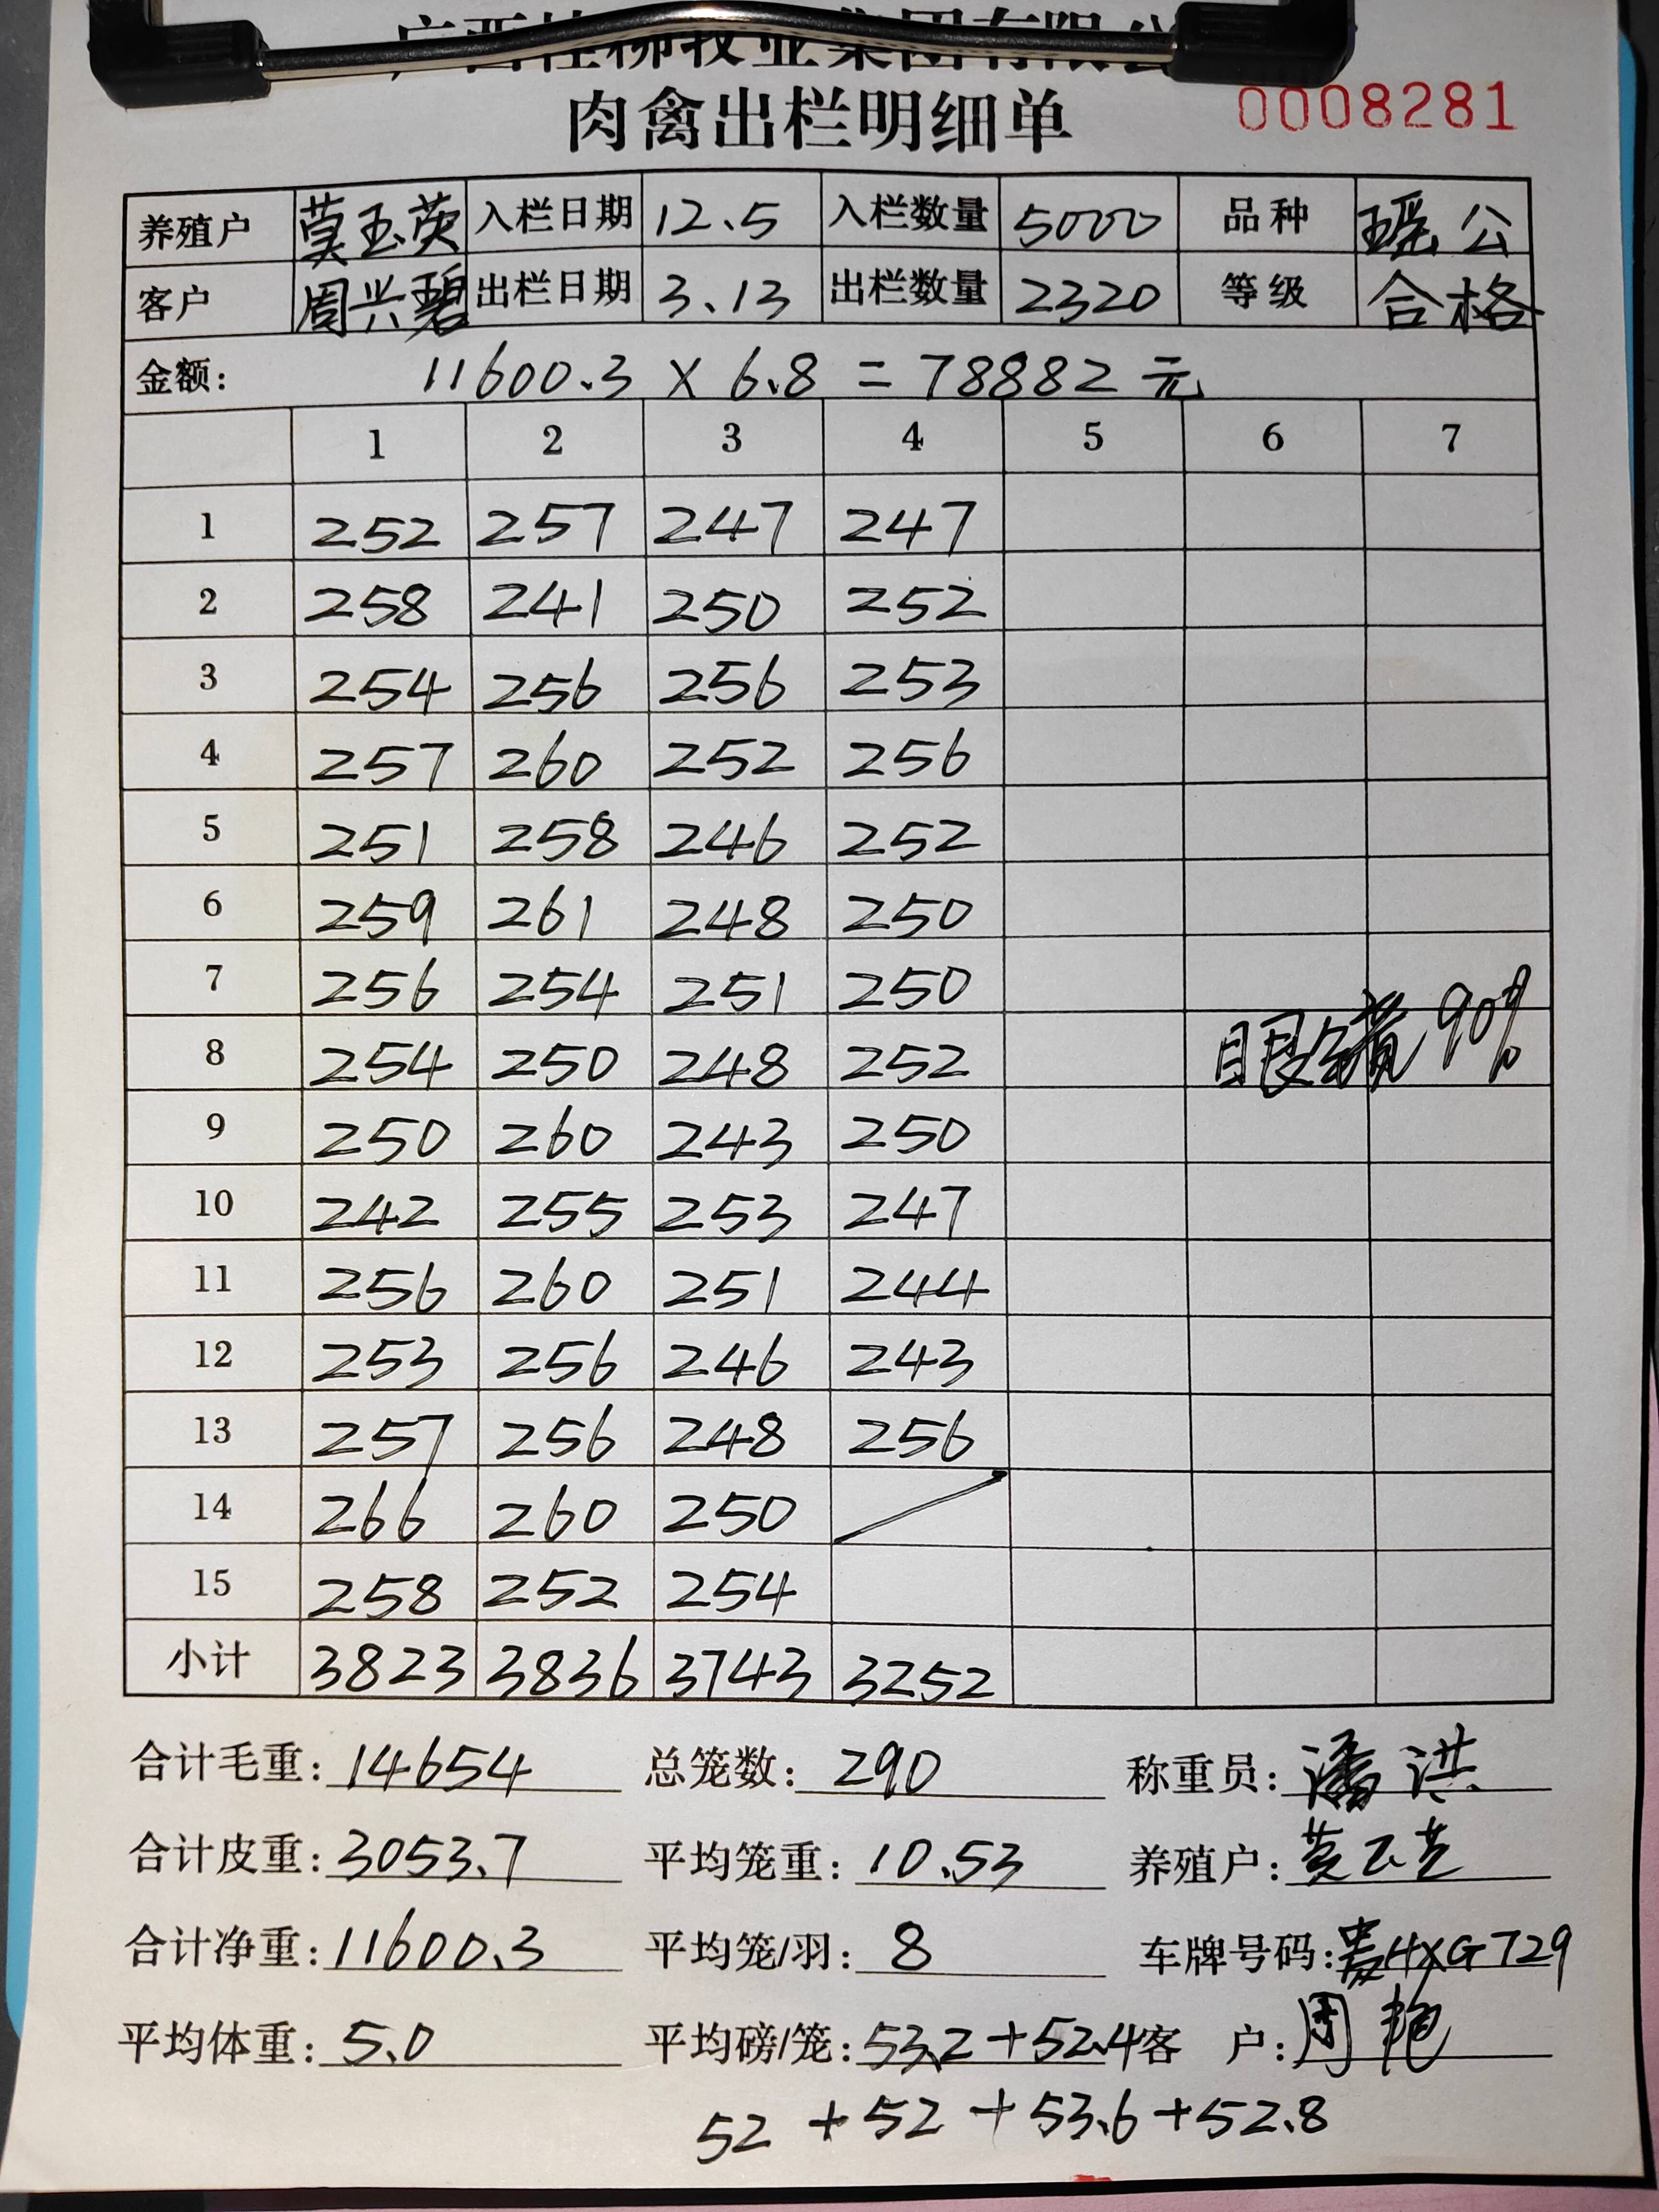 广西桂柳牧业集团有限公
肉禽出栏明细单 0008281
养殖户 莫玉英 入栏日期 12.5 入栏数量 5000 品种 瑶公
客户 周兴碧 出栏日期 3.13 出栏数量 2320 等级 合格
金额: 11600.3 × 6.8 = 78882元
1 2 3 4 5 6 7
1 252 257 247 247
2 258 241 250 252
3 254 256 256 253
4 257 260 252 256
5 251 258 246 252
6 259 261 248 250
7 256 254 251 250
8 254 250 248 252 眼 90%
9 250 260 243 250
10 242 255 253 247
11 256 260 251 244
12 253 256 246 243
13 257 256 248 256
14 266 260 250
15 258 252 254
小计 3823 3836 3743 3252
合计毛重: 14654 总笼数: 290 称重员: 潘洪
合计皮重: 3053.7 平均笼重: 10.53 养殖户:
合计净重: 11600.3 平均笼/羽: 8 车牌号码: HXG729
平均体重: 5.0 平均磅/笼: 53.2+52.4 客 户: 周艳
52 + 52 + 53.6 + 52.8